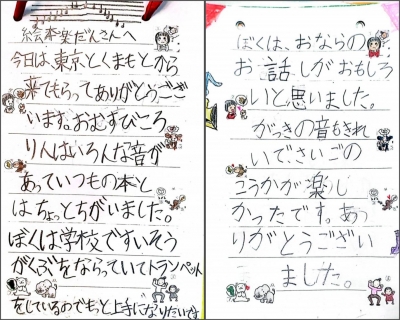 絵本楽だんさんへ
今日は、東京とくまもとから
来てもらってありがとうござ
います。おむすびころ
りんはいろんな音が
あっていつもの本と
はちょっとちがいました。
ぼくは学校ですいそう
がくぶをならっていてトランペット
をしているのでもっと上手になりたいです
ぼくは、おならの
お話しがおもしろ
いと思いました。
がっきの音もきれ
いで、さいごの
こうかが楽し
かったです。あ
りがとうござい
ました。